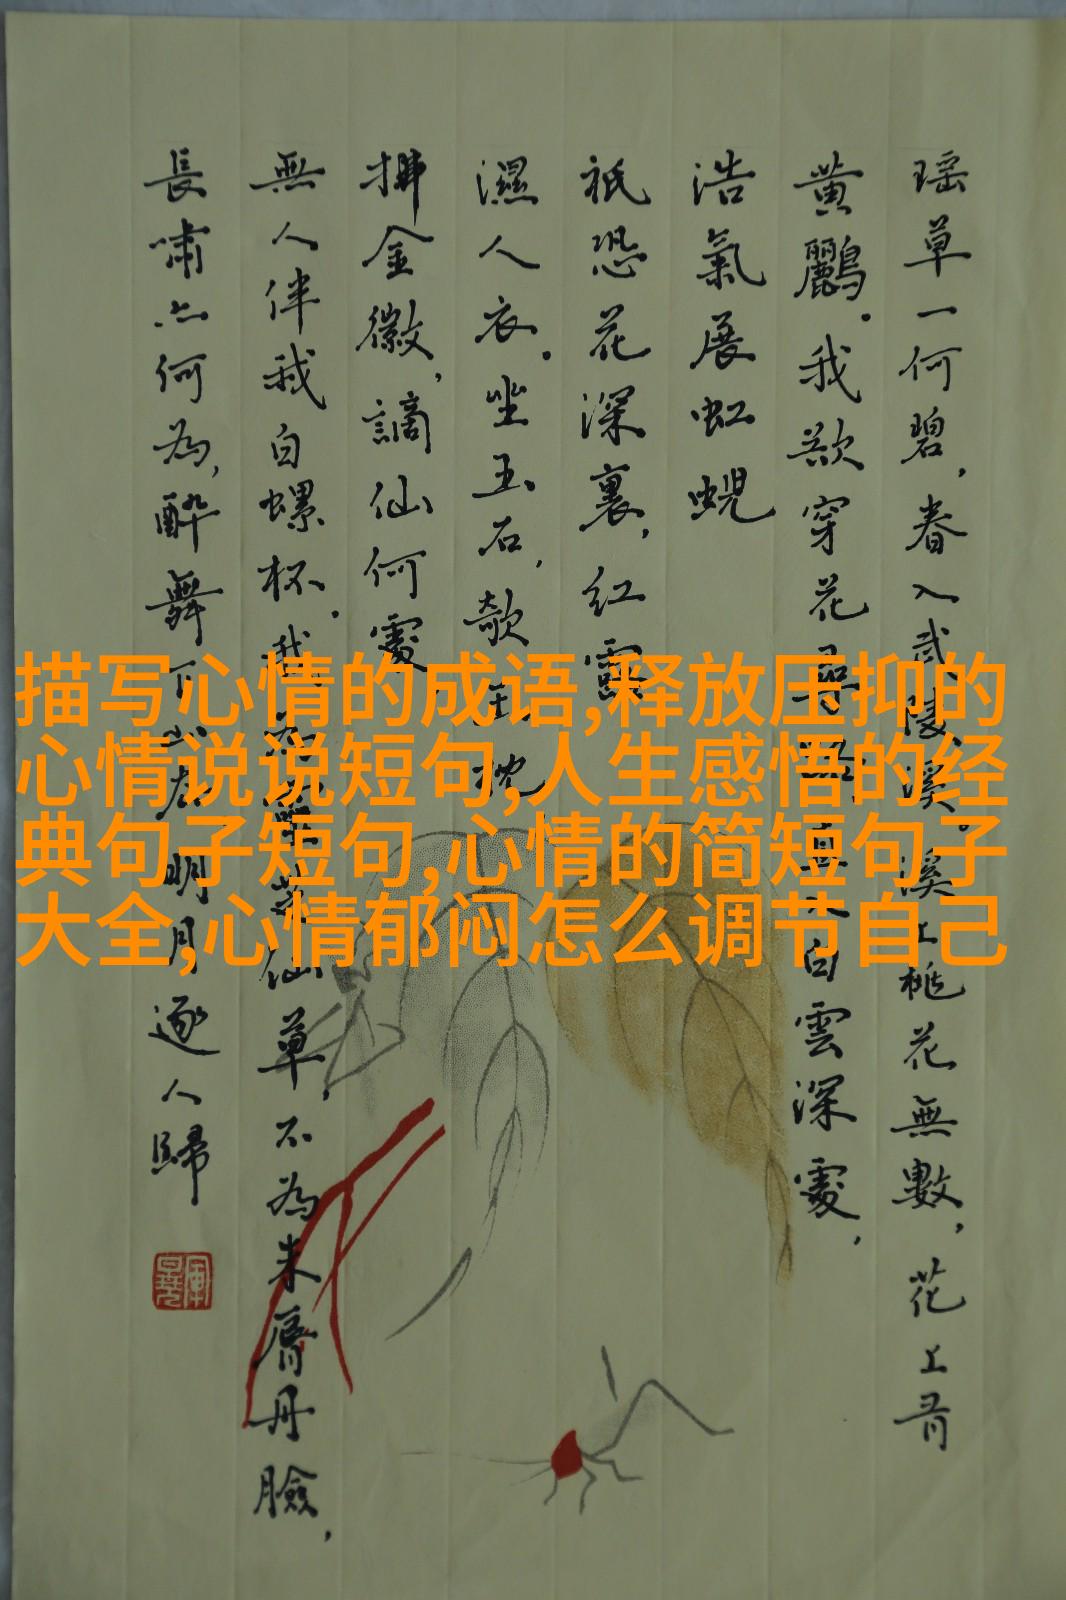 瑶草一何碧，春入武陵溪。溪上桃花無數，花上有
黄鸝。我欲穿花尋路，直入白雲深處，
浩氣展虹蜺
祇恐花深裏，紅露
濕人衣。坐玉石，欹玉枕
拂金徽，謫仙何處
無人伴我白螺杯。我為靈芝仙草，不為朱脣丹臉，
長嘯亦何為，醉舞下山去明月逐人歸
描写心情的成语,释放压抑的
心情说说短句,人生感悟的经
典句子短句,心情的简短句子
大全,心情郁闷怎么调节自己